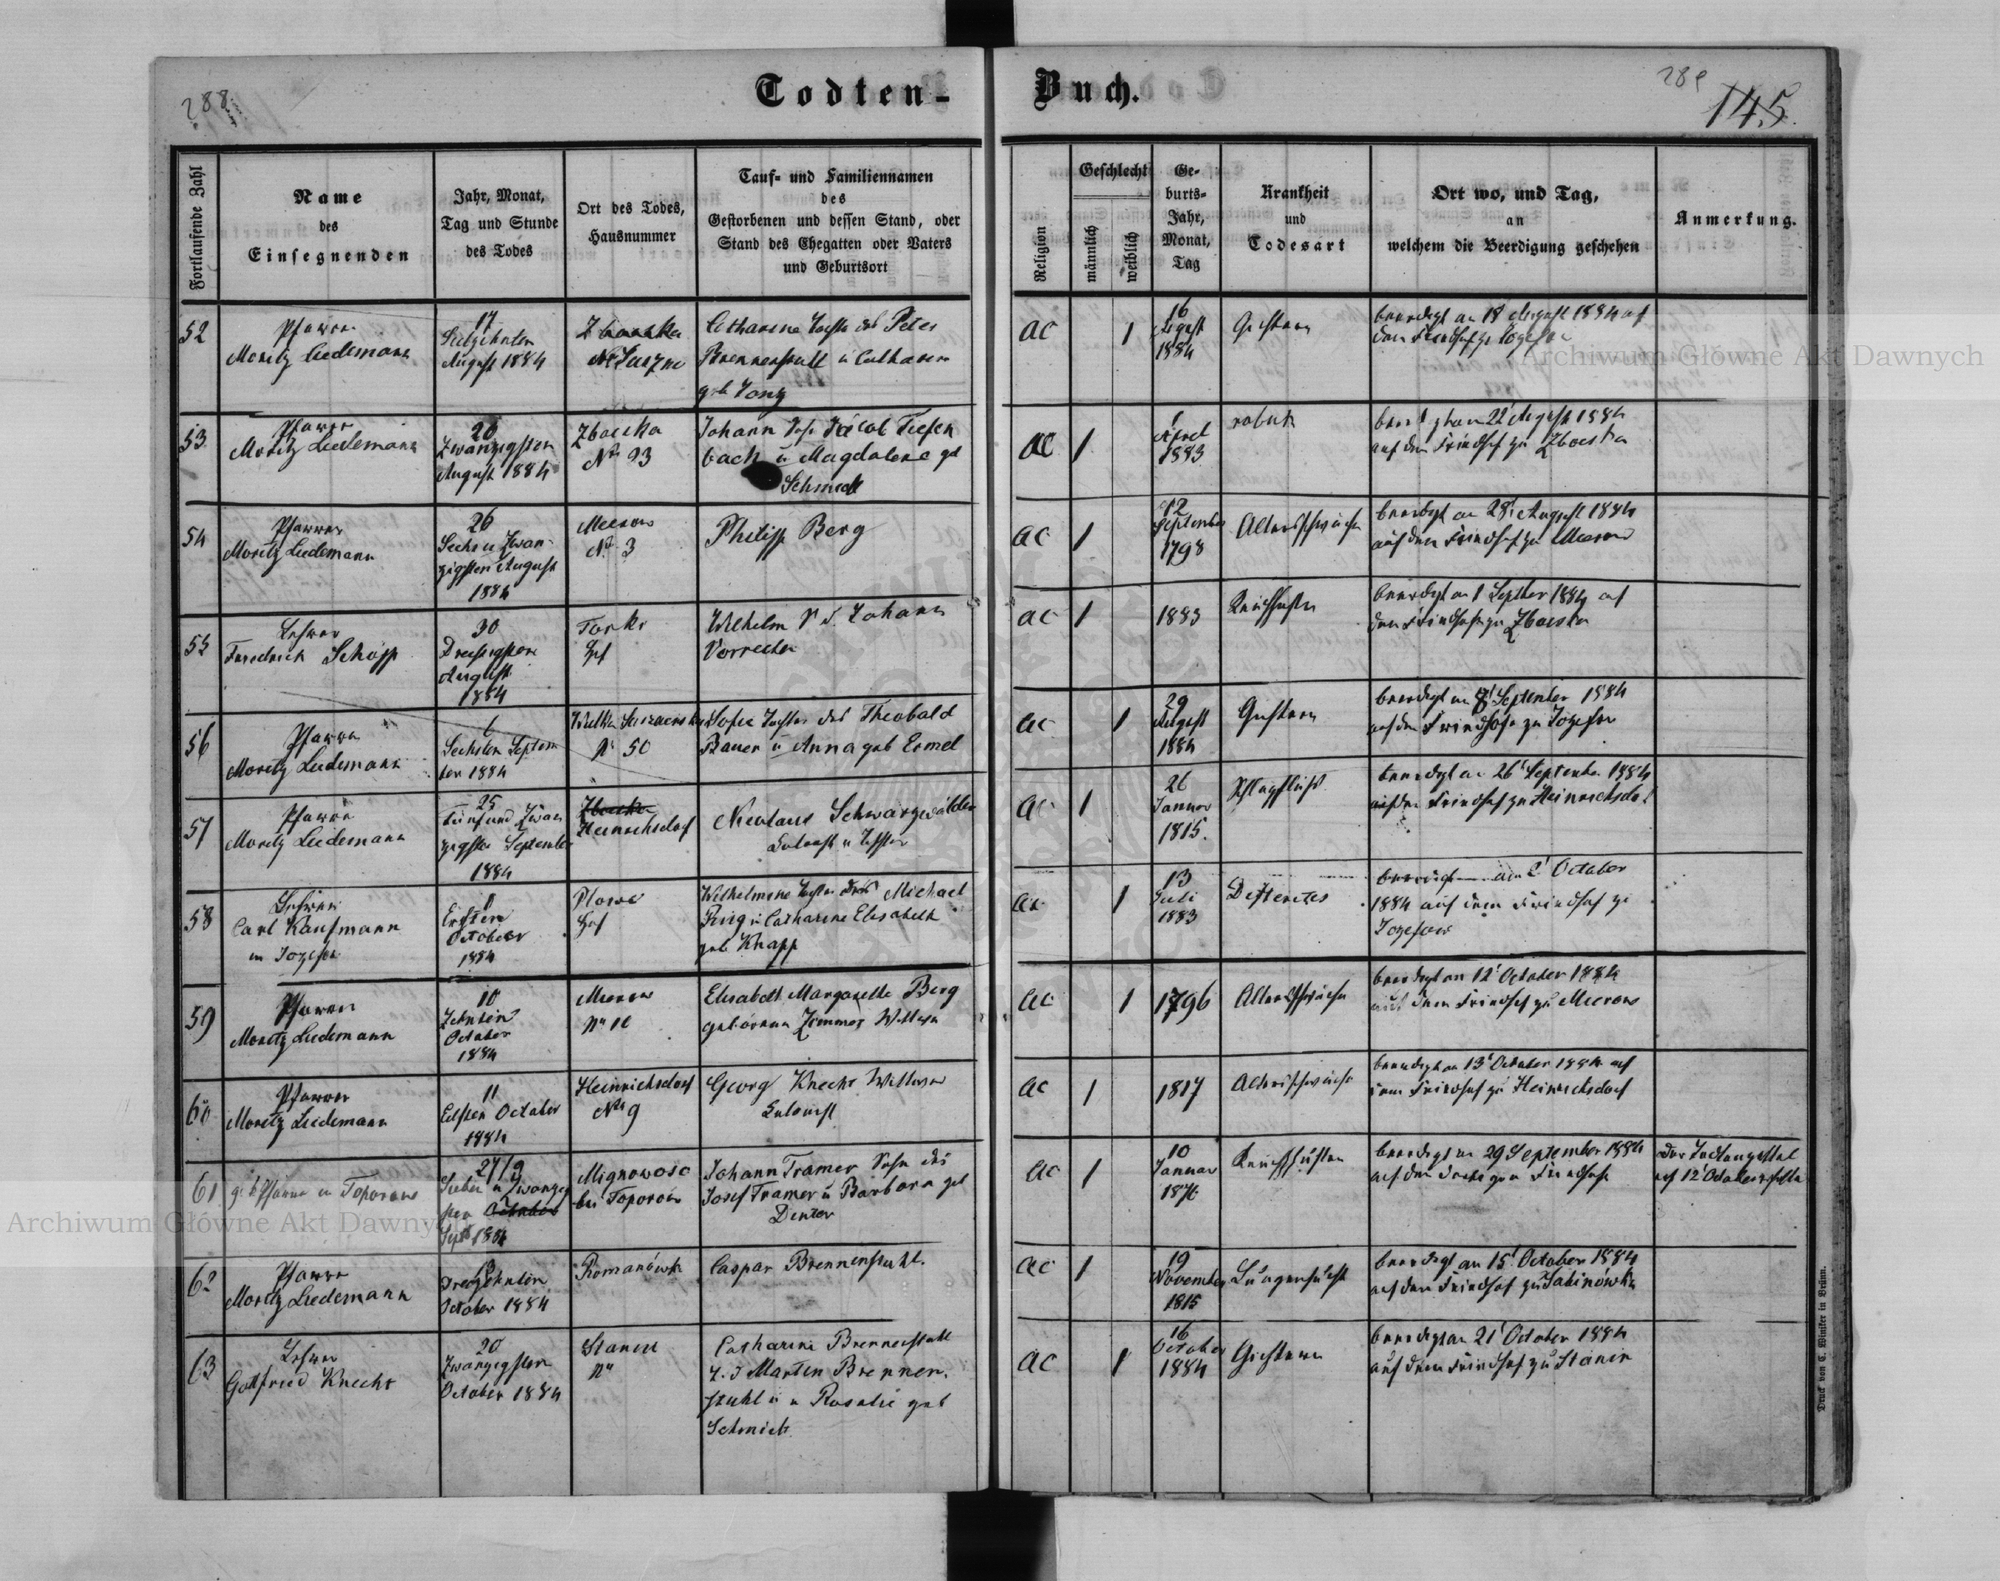 288
Todten-
Buch.
289
145.
Fortlaufende Zahl
Name
des
Einsegnenden
Jahr, Monat,
Tag und Stunde
des Todes
Ort des Todes,
Hausnummer
Tauf- und Familiennamen
des
Gestorbenen und dessen Stand, oder
Stand des Ehegatten oder Vaters
und Geburtsort
Religion
Geschlecht
männlich
weiblich
Ge-
burts-
Jahr,
Monat,
Tag
Krankheit
und
Todesart
Ort wo, und Tag,
an
welchem die Beerdigung geschehen
Anmerkung.
52
Pfarrer
Moritz Liedemann
17
August 1884
Catharina Tochter des Peter
Brennenstuhl u Catharina
geb
ac
1
16
August
1884
beerdigt am 18 August 1884 auf
dem Friedhofe zu Josefow
53
Pfarrer
Moritz Liedemann
20
Zwanzigsten
August 1884
Zboiska
No 93
Johann Sohn Jacob Tiefen
bach u Magdalena geb
Schmidt
ac
1
April
1883
beerdigt am 22t August 1884
auf dem Friedhof zu Zboiska
54
Pfarrer
Moritz Liedemann
26
Sechs u Zwan-
zigsten August
1884
Mierow
No 3
Philipp Berg
ac
1
12
September
1798
Altersschwäche
beerdigt am 28t August 1884
auf dem Friedhof zu Mierow
55
Lehrer
Friedrich Schöpp
30
Dreisigsten
August
1884
Torki
Hof
Wilhelm S. d. Johann
ac
1
1883
Keuchhusten
beerdigt am 1 Septber 1884 auf
dem Friedhofe zu Zboiska
56
Pfarrer
Moritz Liedemann
6
Sechsten Septem
ber 1884
No 50
Sofie Tochter des Theobald
Bauer u Anna geb Ermel
ac
1
29
August
1884
beerdigt am 8t September 1884
auf dem Friedhofe zu Jozefow
57
Pfarrer
Moritz Liedemann
25
Fünf und Zwan
zigsten September
1884
Zboiska
Heinrichsdorf
Nicolaus Schwarzwälder
ac
1
26
Januar
1815.
Schlagfluss
beerdigt am 26t September 1884
auf dem Friedhof zu Heinrichsdorf
58
Lehrer
Carl Kaufmann
in Jozefow
1
Ersten
October
1884
Hof
Wilhelmine Tochter des Michael
Ring u Catharine Elisabeth
geb Knapp
ac
1
13
Juli
1883
beerdigt am 2t October
1884 auf dem Friedhof zu
Jozefow
59
Pfarrer
Moritz Liedemann
10
Zehnten
October
1884
Mierow
Elisabeth Margarethe Berg
geborene Zimmer Wittwe
ac
1
1796
Altersschwäche
beerdigt am 12t October 1884
auf dem Friedhof zu Mierow
60
Pfarrer
Moritz Liedemann
11
Eilften October
1884
Heinrichsdorf
No 9
Georg Knecht Wittwer
ac
1
1817
Altersschwäche
beerdigt am 13t October 1884 auf
dem Friedhof zu Heinrichsdorf
61
Pfarrer in Toporow
27/9
Sieben u Zwanzig
sten October
Septb 1884
bei Toporow
Johann Tramer Sohn des
Josef Tramer u Barbara geb
ac
1
10
Januar
1876
Keuchhusten
beerdigt am 29 September 1884
auf dem dortigen Friedhofe
62
Pfarrer
Moritz Liedemann
13
Dreizehnten
October 1884
Romanówka
Caspar Brennenstuhl.
ac
1
19
November
1815
Lungensucht
beerdigt am 15t October 1884
auf dem Friedhof zu Sabinówka
63
Lehrer
Gottfried Knecht
20
Zwanzigsten
October 1884
Stanin
No
Catharina Brennenstuhl
T. d Martin Brennen-
stuhl u Rosalie geb
Schmidt
ac
1
16
October
1884
beerdigt am 21t October 1884
auf dem Friedhof zu Stanin
Druck von C. Winiker in Brünn.
Archiwum Główne Akt Dawnych
Archiwum Główne Akt Dawnych